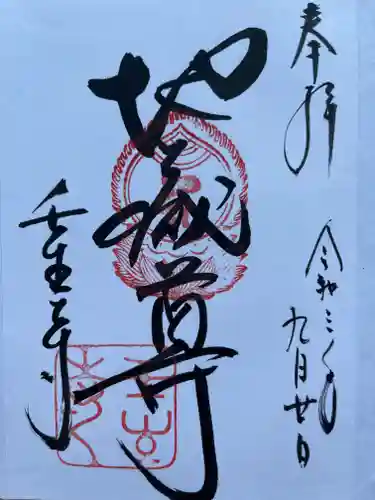 奉拝
令和三年
九月廿日
地蔵尊
壬生寺